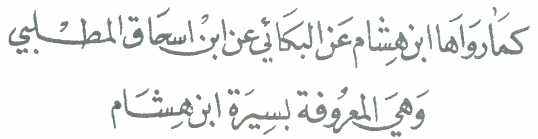 كما رواها ابن هشام عن البكائي عن ابن اسحاق المطلبي
وهي المعروفة بسيرة ابن هشام